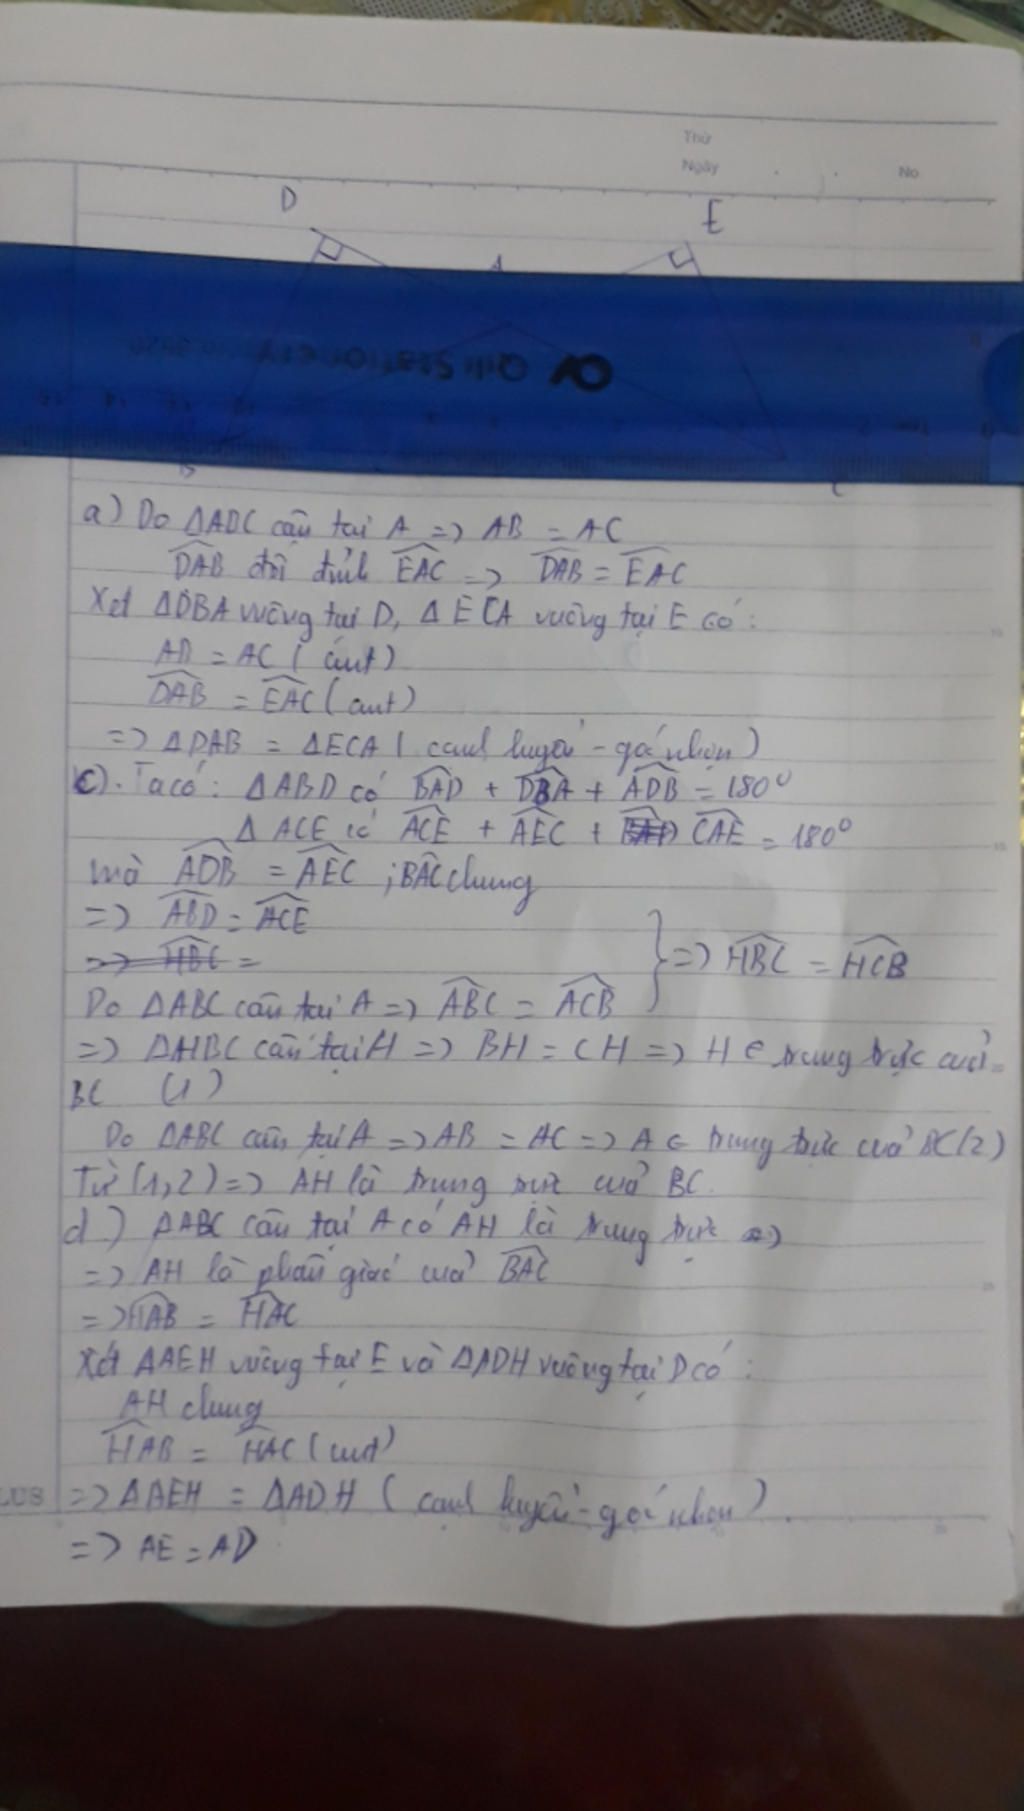 Thứ
Ngày
No
D
E
A
Qili Stationery
B
C
a) Do ΔABC cân tại A => AB = AC
DAB đối đỉnh EAC => DAB = EAC
Xét ΔDBA vuông tại D, ΔECA vuông tại E có:
AB = AC (cmt)
DAB = EAC (cmt)
=> ΔDAB = ΔECA (cạnh huyền - góc nhọn)
c). Ta có: ΔABD có BAD + DBA + ADB = 180°
ΔACE có ACE + AEC + CAE = 180°
mà ADB = AEC ; BAC chung
=> ABD = ACE
=> HBC =
} => HBC = HCB
Do ΔABC cân tại A => ABC = ACB
=> ΔHBC cân tại H => BH = CH => H ∈ trung trực của
BC (1)
Do ΔABC cân tại A => AB = AC => A ∈ trung trực của BC (2)
Từ (1,2) => AH là trung trực của BC.
d) ΔABC cân tại A có AH là trung trực =>
=> AH là phân giác của BAC
=> HAB = HAC
Xét ΔAEH vuông tại E và ΔADH vuông tại D có:
AH chung
HAB = HAC (cmt)
=> ΔAEH = ΔADH (cạnh huyền - góc nhọn).
=> AE = AD